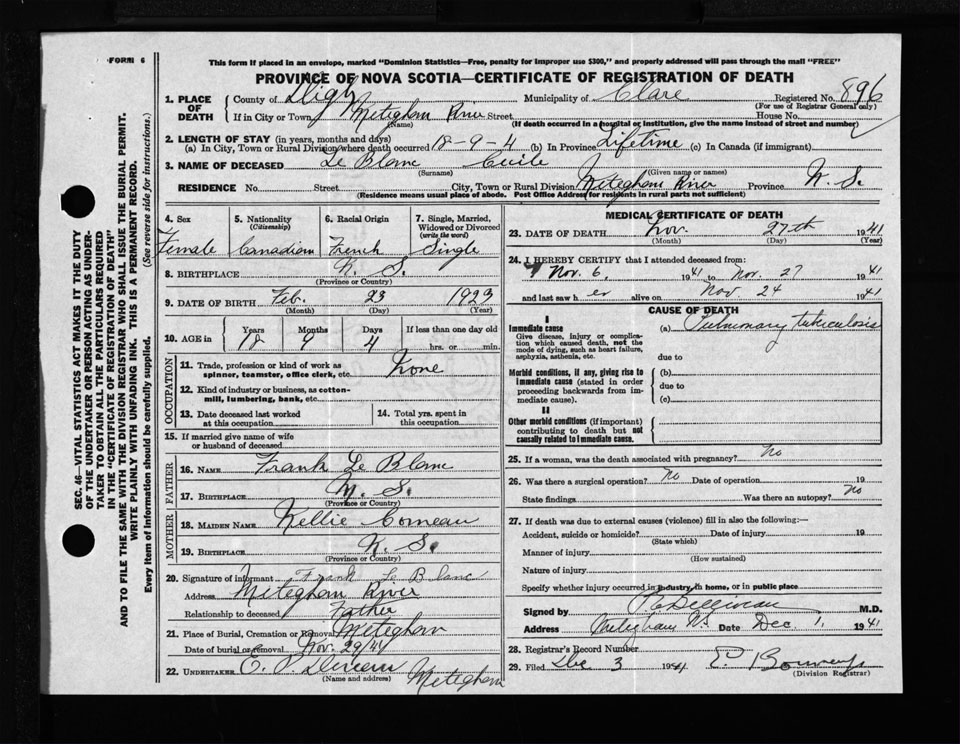 FORM 6
This form if placed in an envelope, marked "Dominion Statistics—Free, penalty for improper use $300," and properly addressed will pass through the mail "FREE"
PROVINCE OF NOVA SCOTIA—CERTIFICATE OF REGISTRATION OF DEATH
1. PLACE OF DEATH County of Digby Municipality of Clare Registered No. 896
(For use of Registrar General only)
If in City or Town Meteghan River Street House No.
(Name) (If death occurred in a hospital or institution, give the name instead of street and number)
2. LENGTH OF STAY (in years, months and days)
(a) In City, Town or Rural Division where death occurred 18-9-4 (b) In Province Lifetime (c) In Canada (if immigrant)
3. NAME OF DECEASED Le Blanc
(Surname) (Given name or names)
RESIDENCE No. Street City, Town or Rural Division Meteghan River Province N. S.
(Residence means usual place of abode. Post Office Address for residents in rural parts not sufficient)
4. Sex 5. Nationality 6. Racial Origin 7. Single, Married, Widowed or Divorced
(Citizenship) (write the word)
Female Canadian French Single
8. BIRTHPLACE N. S.
(Province or Country)
9. DATE OF BIRTH Feb. 23 1923
(Month) (Day) (Year)
10. AGE in Years Months Days If less than one day old
18 9 4 hrs. or min.
OCCUPATION
11. Trade, profession or kind of work as spinner, teamster, office clerk, etc. None
12. Kind of industry or business, as cotton-mill, lumbering, bank, etc.
13. Date deceased last worked at this occupation
14. Total yrs. spent in this occupation
15. If married give name of wife or husband of deceased
FATHER
16. NAME Frank Le Blanc
17. BIRTHPLACE N. S.
(Province or Country)
MOTHER
18. MAIDEN NAME Nellie Comeau
19. BIRTHPLACE N. S.
(Province or Country)
20. Signature of informant Frank Le Blanc
Address Meteghan River
Relationship to deceased Father
21. Place of Burial, Cremation or Removal Meteghan
Date of burial or removal Nov. 29/41
22. UNDERTAKER E. P. Meteghan
(Name and address)
MEDICAL CERTIFICATE OF DEATH
23. DATE OF DEATH Nov. 27th 1941
(Month) (Day) (Year)
24. I HEREBY CERTIFY that I attended deceased from:
Nov. 6, 1941 to Nov. 27 1941
and last saw her alive on Nov 24 1941
CAUSE OF DEATH
I
Immediate cause
Give disease, injury or complication which caused death, not the mode of dying, such as heart failure, asphyxia, asthenia, etc.
(a) Pulmonary tuberculosis
due to
Morbid conditions, if any, giving rise to immediate cause (stated in order proceeding backwards from immediate cause).
(b)
due to
(c)
II
Other morbid conditions (if important) contributing to death but not causally related to immediate cause.
25. If a woman, was the death associated with pregnancy? No
26. Was there a surgical operation? No Date of operation 19
State findings Was there an autopsy? No
27. If death was due to external causes (violence) fill in also the following:—
Accident, suicide or homicide? Date of injury 19
(State which)
Manner of injury
(How sustained)
Nature of injury
Specify whether injury occurred in industry, in home, or in public place
Signed by M.D.
Address Meteghan N.S Date Dec 1, 1941
28. Registrar's Record Number
29. Filed Dec 3 1941
(Division Registrar)
SEC. 46—VITAL STATISTICS ACT MAKES IT THE DUTY
OF THE UNDERTAKER OR PERSON ACTING AS UNDER-
TAKER TO OBTAIN ALL THE PARTICULARS REQUIRED
IN THE "CERTIFICATE OF REGISTRATION OF DEATH"
AND TO FILE THE SAME WITH THE DIVISION REGISTRAR WHO SHALL ISSUE THE BURIAL PERMIT.
WRITE PLAINLY WITH UNFADING INK. THIS IS A PERMANENT RECORD.
Every item of Information should be carefully supplied. (See reverse side for instructions.)